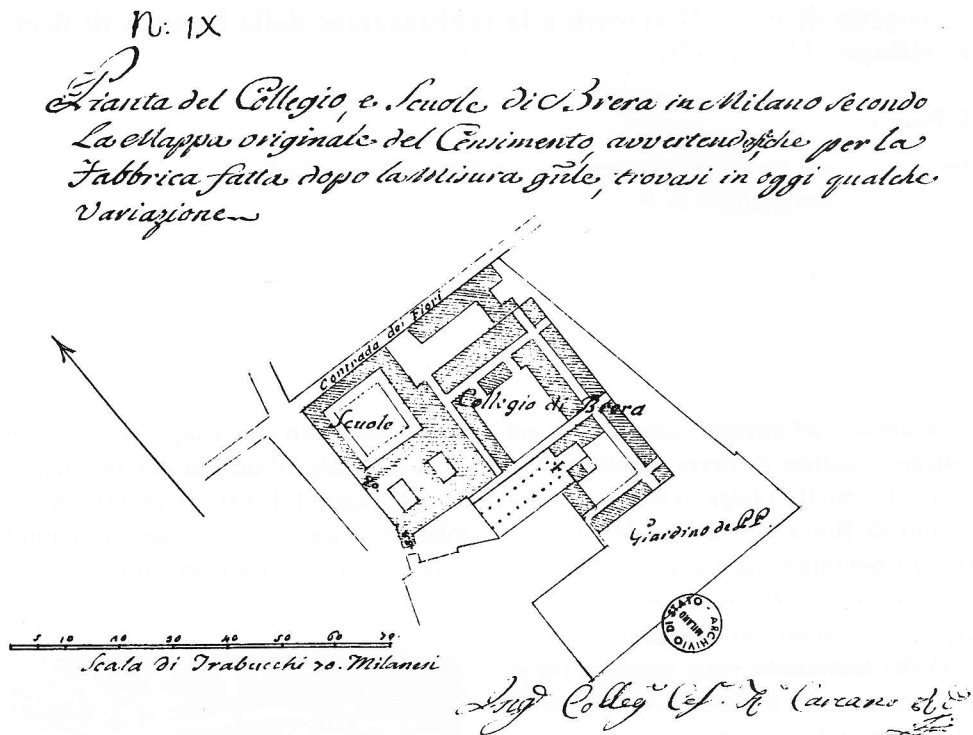 N. IX
Pianta del Collegio, e Scuole di Brera in Milano secondo
La Mappa originale del Censimento, avvertendosi, che per la
Fabbrica fatta dopo la Misura gñle, trovasi in oggi qualche
Variazione
Contrada dei Fiori
Scuole
Collegio di Brera
Giardino de PP.
ARCHIVIO DI STATO - MILANO
5 10 20 30 40 50 60 70.
Scala di Trabucchi 70. Milanesi
Ingᵉ Collegᵗᵒ Carcano